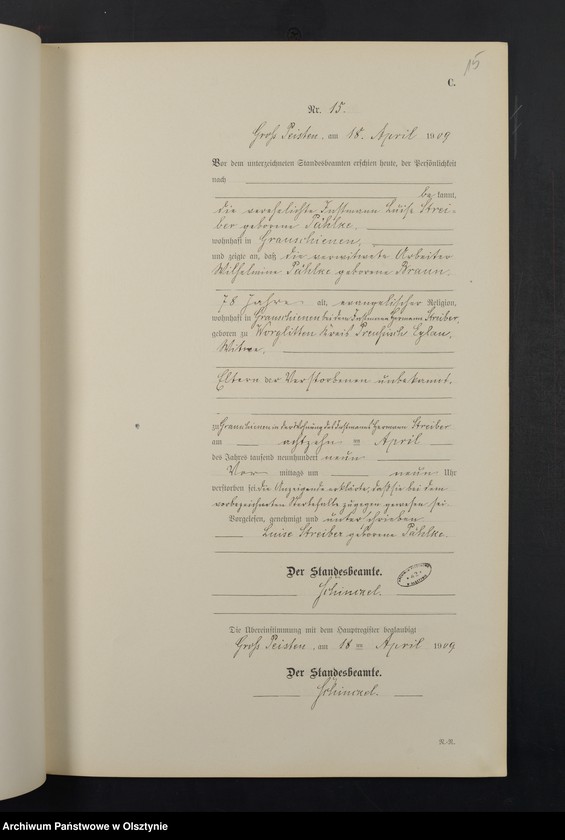 15
C.
Nr. 15.
Groß Peisten, am 18. April 1909
Vor dem unterzeichneten Standesbeamten erschien heute, der Persönlichkeit
nach
be kannt,
die verehelichte Instmann Luise Strei-
ber geborene Pählke,
wohnhaft in Grauschienen,
und zeigte an, daß die verwitwete Arbeiter
Wilhelmine Pählke geborene Braun,
78 Jahre alt, evangelischer Religion,
wohnhaft in Grauschienen bei dem Instmann Hermann Streiber,
geboren zu Worglitten Kreis Preußisch Eylau,
Witwe,
Eltern der Verstorbenen unbekannt,
zu Grauschienen in der Wohnung des Instmanns Hermann Streiber
am achtzehn ten April
des Jahres tausend neunhundert neun
Vor mittags um neun Uhr
verstorben sei, die Anzeigende erklärte, daß sie bei dem
vorbezeichneten Sterbefalle zugegen gewesen sei.
Vorgelesen, genehmigt und unterschrieben
Luise Streiber geborene Pählke.
Der Standesbeamte.
Die Übereinstimmung mit dem Hauptregister beglaubigt
Groß Peisten, am 18 ten April 1909
Der Standesbeamte.
N.-R.
Archiwum Państwowe w Olsztynie